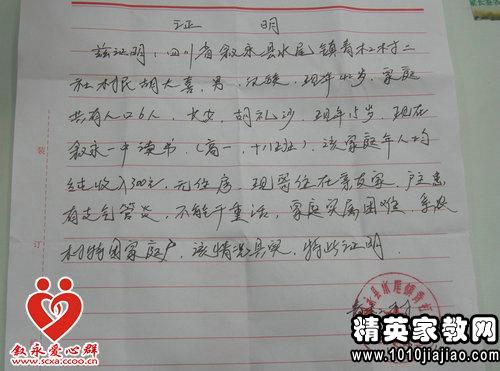 证 明
兹证明:四川省叙永县水尾镇青红村二
社村民胡大喜,男,汉族,现年42岁,家庭
共有人口6人,长女,胡礼沙,现年15岁,现在
叙永一中读书(高一、十八班),该家庭年人均
纯收入300元,无住房,现寄住在亲友家,户主患
有支气管炎,不能干重活,家庭实属困难,系农
村特困家庭户,该情况具实,特此证明.
装
订
叙永爱心群
www.scxa.ccoo.cn
精英家教网
www.1010jiajiao.com